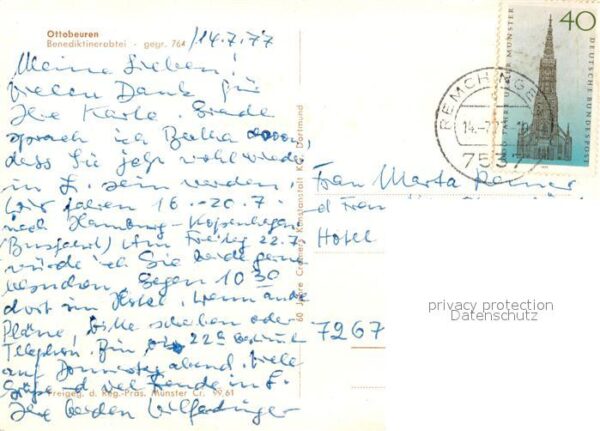 Ottobeuren
Benediktinerabtei - gegr. 764
14.7.77
Meine Lieben!
vielen Dank für
Ihre Karte. Gerade
sprach ich davon,
dass Sie jetzt wohl wieder
in F. sein werden.
Wir fahren 16.-20.7
nach Hamburg-Kopenhagen
(Busfahrt) Am Freitag 22.7
würde ich Sie beide gerne
besuchen. Gegen 10 30
dort im Hotel. Wenn andere
Pläne, bitte schreiben oder
Telephon. Bin zurück
auf Donnerstag abend. Viele
Grüße d viel Freude in F.
Ihre beiden
Freigeg. d. Reg.-Präs. Münster Cr. 99 61
60 Jahre Cramers Kunstanstalt KG, Dortmund
40
DEUTSCHE BUNDESPOST
JAHRE ULMER MÜNSTER
REMCHINGEN
14.-7.77
7537
Frau Marta
d Frau
Hotel
7267
privacy protection
Datenschutz